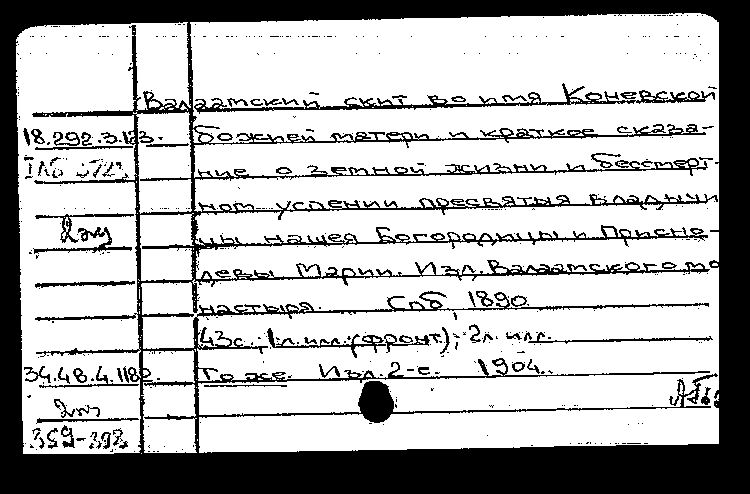 Валаамский скит во имя Коневской
18.292.3.123. божией матери и краткое сказа-
ние о земной жизни и бессмерт-
ном успении пресвятыя владычи
2экз
цы нашея Богородицы и Присно-
девы Марии. Изд. Валаамского мо
настыря. Спб, 1890
43с., 1л.илл.(фронт); 2л. илл.
34.48.4.1182. То же. Изд. 2-е. 1904.
2экз
359-392